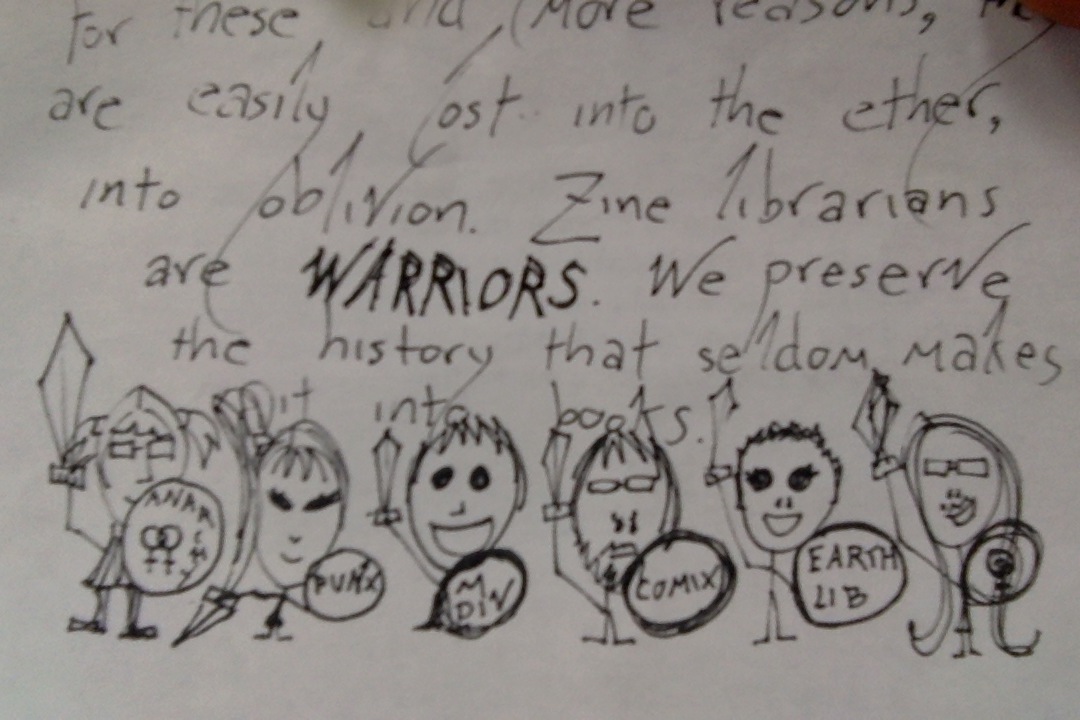 for these, and (more reasons,
are easily lost into the ether,
into oblivion. Zine librarians
are WARRIORS. We preserve
the history that seldom makes
it into books.
ANAR
PUNX
M
DIN
COMIX
EARTH
LIB